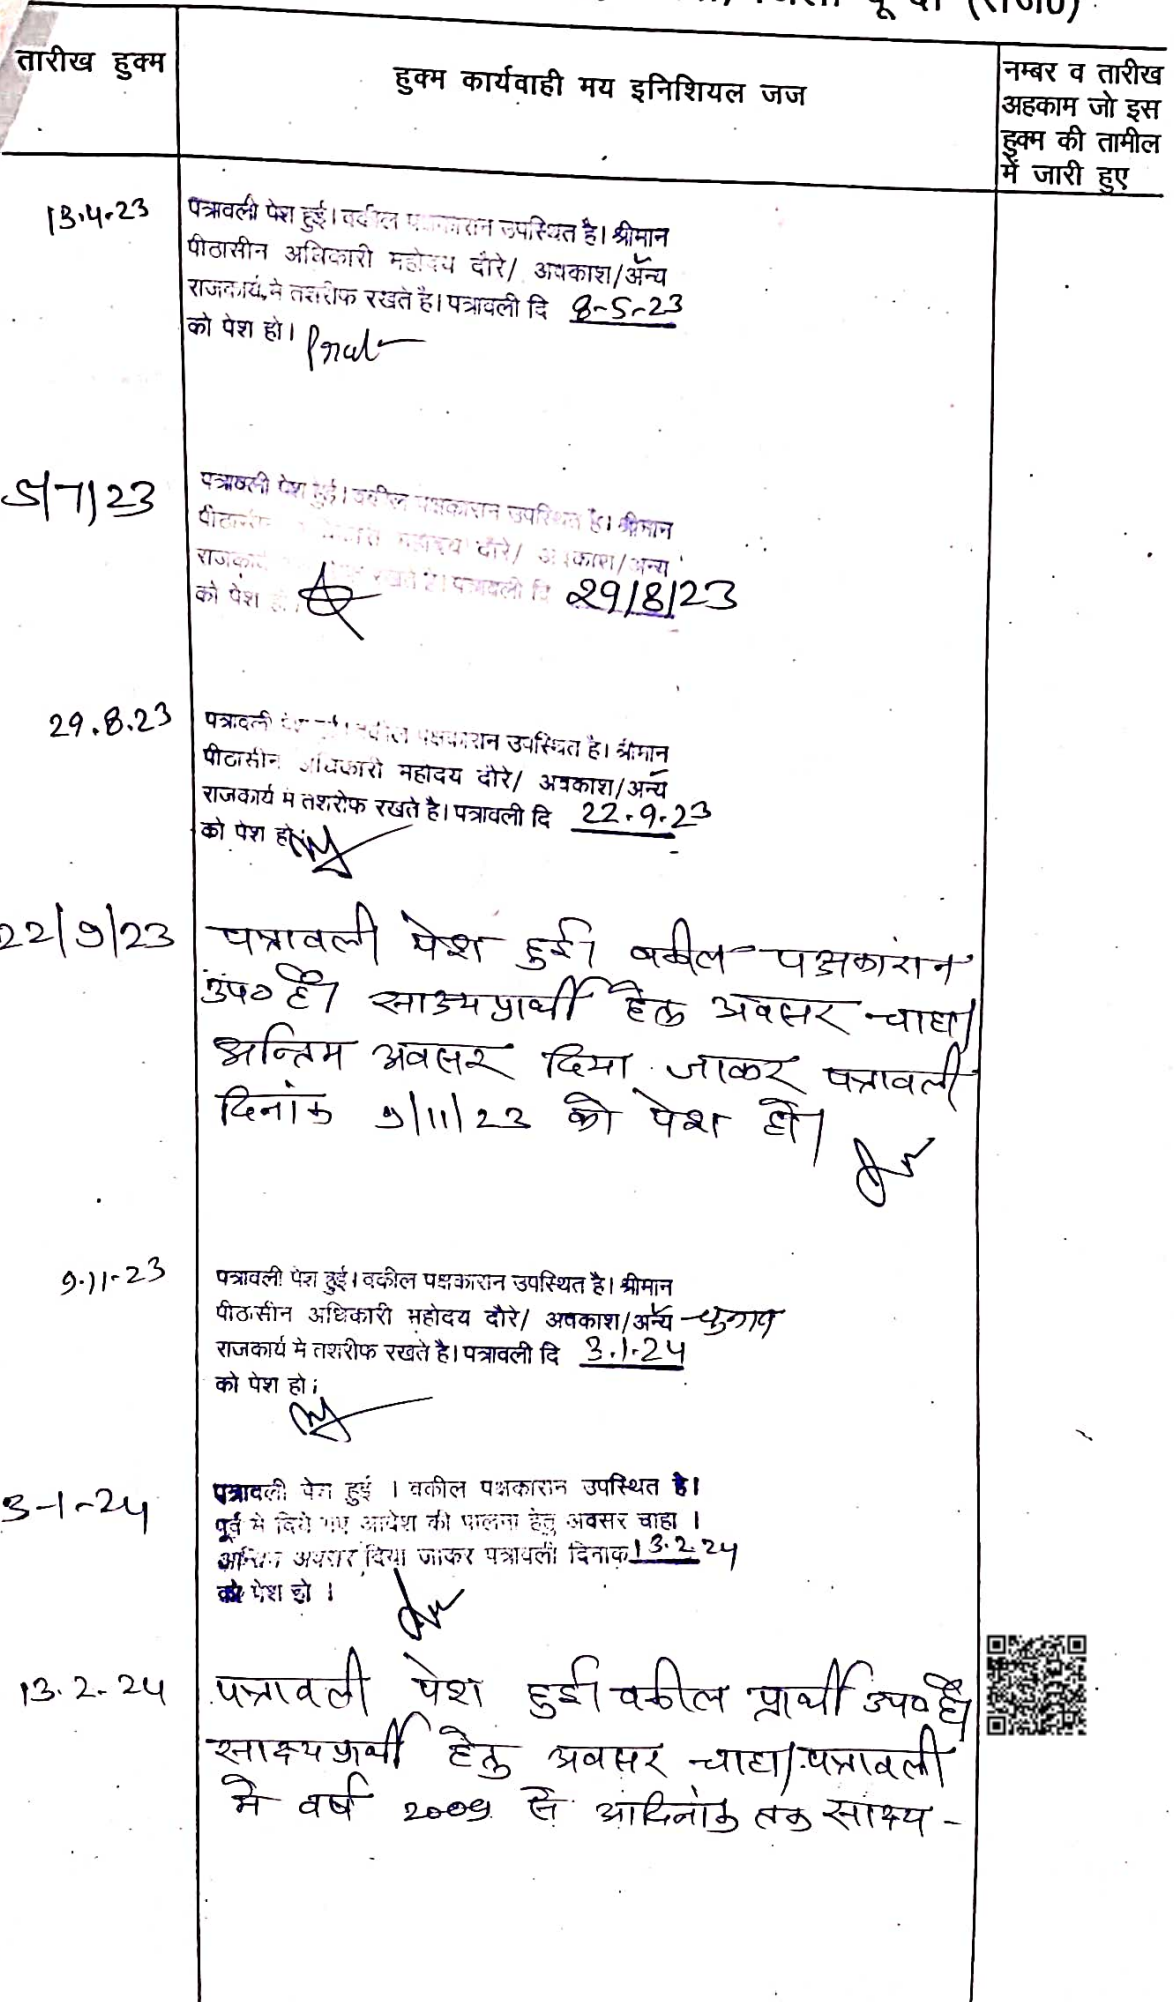 (राज0)
तारीख हुक्म
हुक्म कार्यवाही मय इनिशियल जज
नम्बर व तारीख
अहकाम जो इस
हुक्म की तामील
में जारी हुए
13.4.23
पत्रावली पेश हुई। वकील पक्षकारान उपस्थित है। श्रीमान
पीठासीन अधिकारी महोदय दौरे/ अवकाश/अन्य
राजकार्य मे तशरीफ रखते है। पत्रावली दि 8-5-23
को पेश हो।
5/7/23
पत्रावली पेश हुई। वकील पक्षकारान उपस्थित है। श्रीमान
पीठासीन महोदय दौरे/ अवकाश/अन्य
राजकार्य रखते है। पत्रावली दि 29/8/23
को पेश
29.8.23
पत्रावली वकील पक्षकारान उपस्थित है। श्रीमान
पीठासीन अधिकारी महोदय दौरे/ अवकाश/अन्य
राजकार्य मे तशरीफ रखते है। पत्रावली दि 22.9.23
को पेश हो
22/9/23
पत्रावली पेश हुई। वकील पक्षकारान
उप0 है। साक्ष्य प्रार्थी हेतु अवसर चाहा।
अन्तिम अवसर दिया जाकर पत्रावली
दिनांक 9/11/23 को पेश हो।
9.11-23
पत्रावली पेश हुई। वकील पक्षकारान उपस्थित है। श्रीमान
पीठासीन अधिकारी महोदय दौरे/ अवकाश/अन्य चुनाव
राजकार्य मे तशरीफ रखते है। पत्रावली दि 3.1.24
को पेश हो।
3-1-24
पत्रावली पेश हुई । वकील पक्षकारान उपस्थित है।
पूर्व मे दिये गए आदेश की पालना हेतु अवसर चाहा ।
अन्तिम अवसर दिया जाकर पत्रावली दिनाक 13.2.24
को पेश हो ।
13.2.24
पत्रावली पेश हुई। वकील प्रार्थी उप0 है।
साक्ष्य प्रार्थी हेतु अवसर चाहा। पत्रावली
मे वर्ष 2009 से आदिनांक तक साक्ष्य -